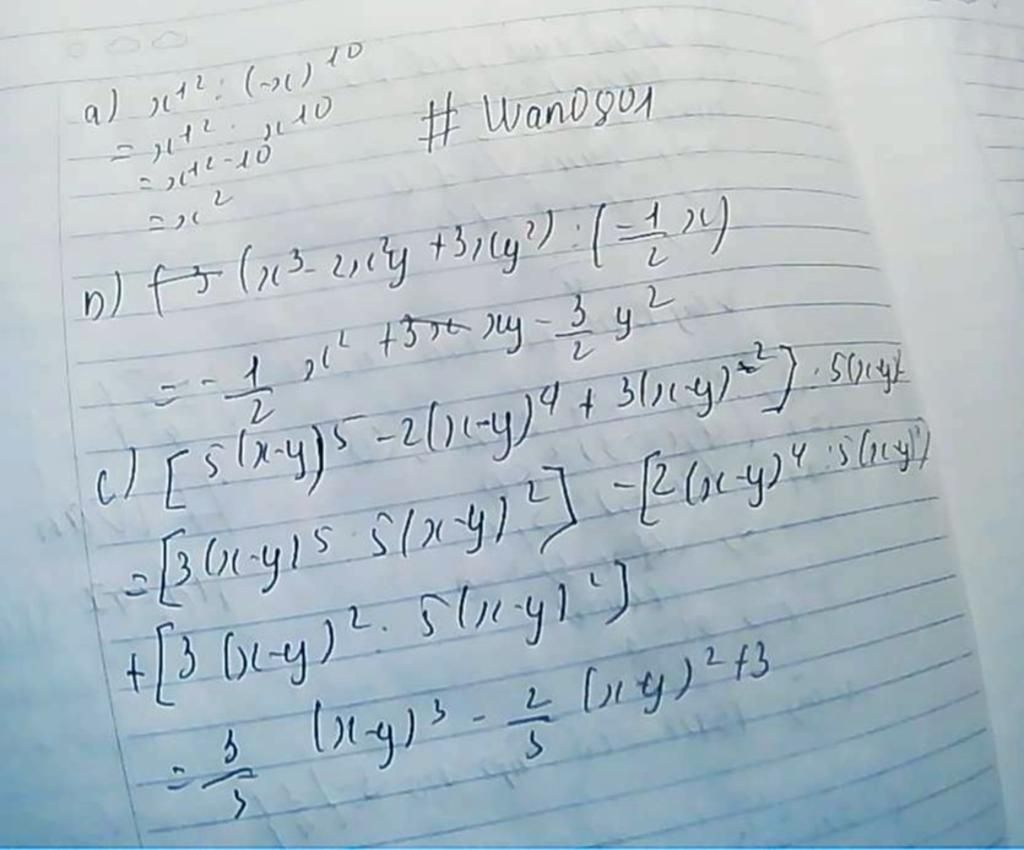 a) x^12 : (-x)^10
= x^12 : x^10
= x^12-10
= x^2
# Wan0801
b) (x^3 - 2x^2y + 3xy^2) : (-1/2 x)
= -1/2 x^2 + xy - 3/2 y^2
c) [5(x-y)^5 - 2(x-y)^4 + 3(x-y)^2] : 5(x-y)^2
= [3(x-y)^5 : 5(x-y)^2] - [2(x-y)^4 : 5(x-y)^2]
+ [3(x-y)^2 : 5(x-y)^2]
= 3/5 (x-y)^3 - 2/5 (x-y)^2 + 3